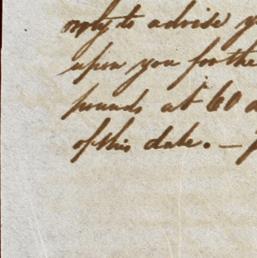 reply to advise y
upon you for the
pounds at 60 d
of this date. —